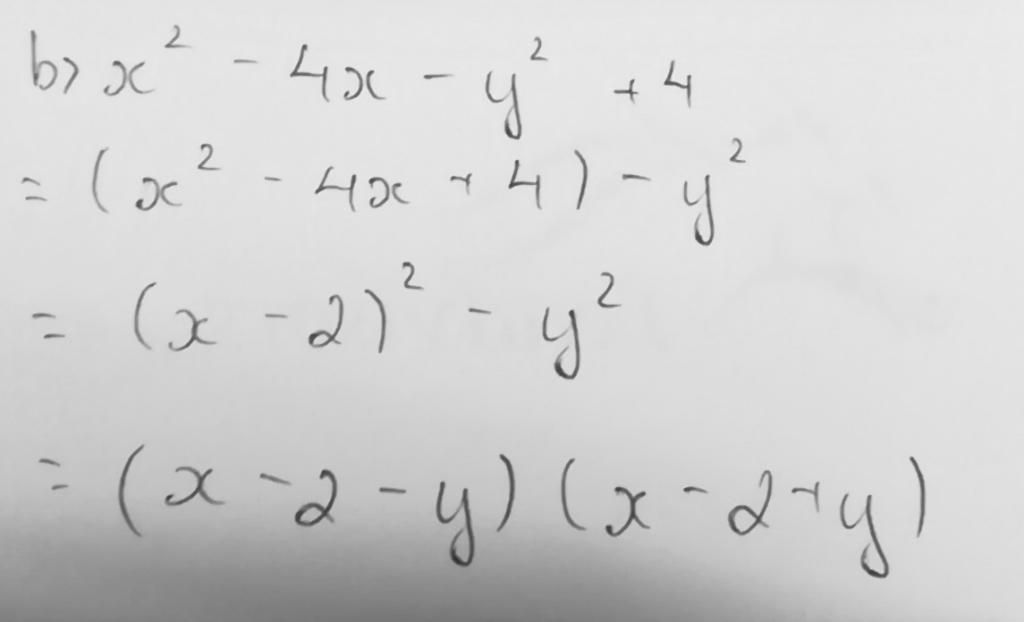 b> x² - 4x - y² + 4
= (x² - 4x + 4) - y²
= (x - 2)² - y²
= (x - 2 - y) (x - 2 + y)